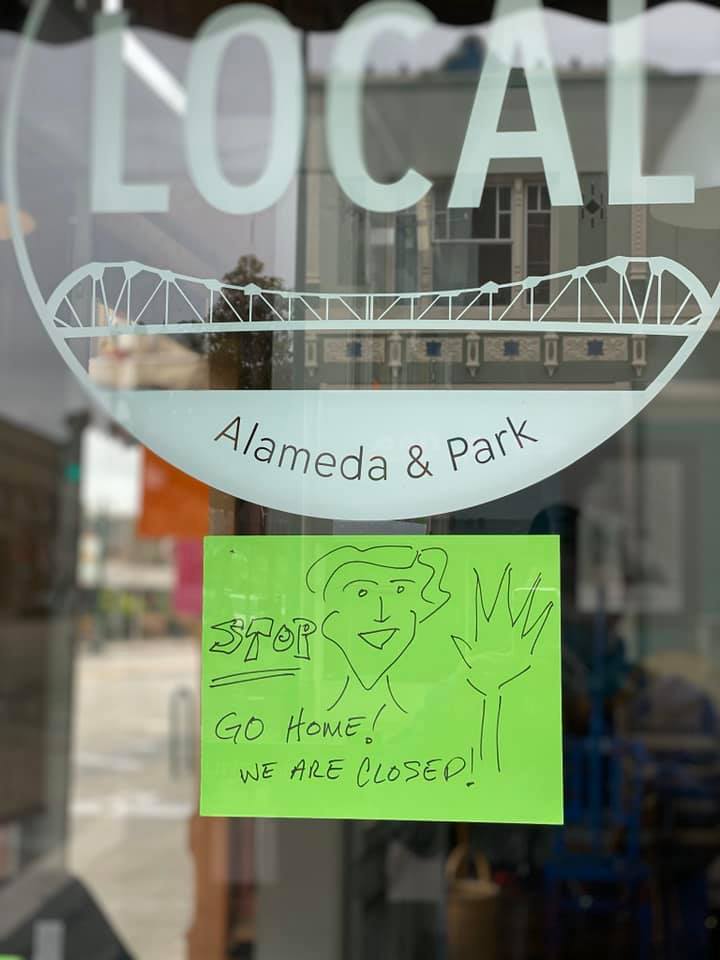 LOCAL
Alameda & Park
STOP
GO HOME!
WE ARE CLOSED!